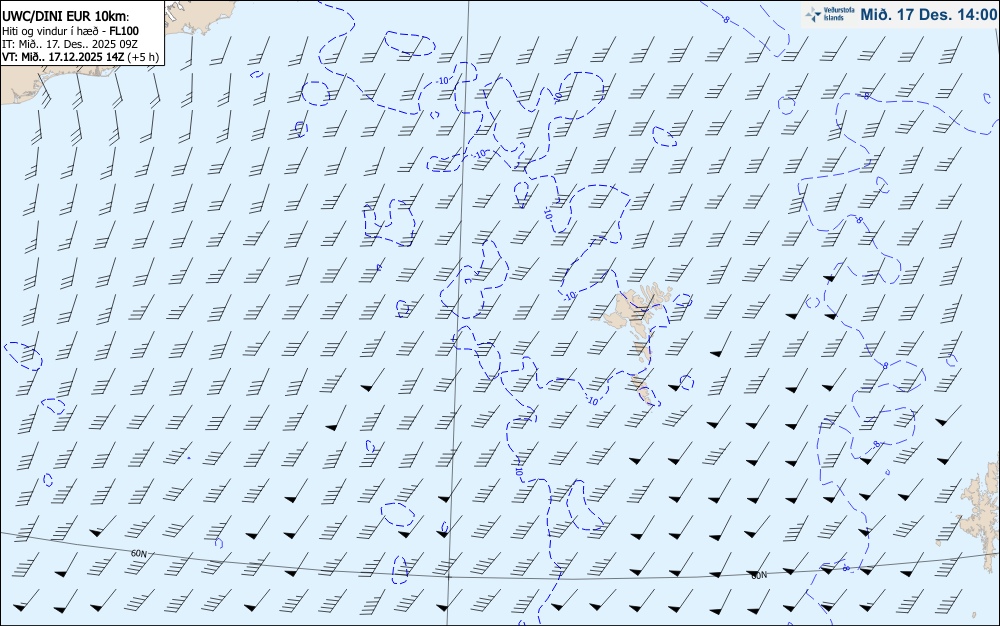 UWC/DINI EUR 10km:
Hiti og vindur í hæð - FL100
IT: Mið.. 17. Des.. 2025 09Z
VT: Mið.. 17.12.2025 14Z (+5 h)
Veðurstofa
Íslands
Mið. 17 Des. 14:00
-8
-10
-8
-10
-10
-8
-10
-8
-10
-8
-10
60N
-8
60N